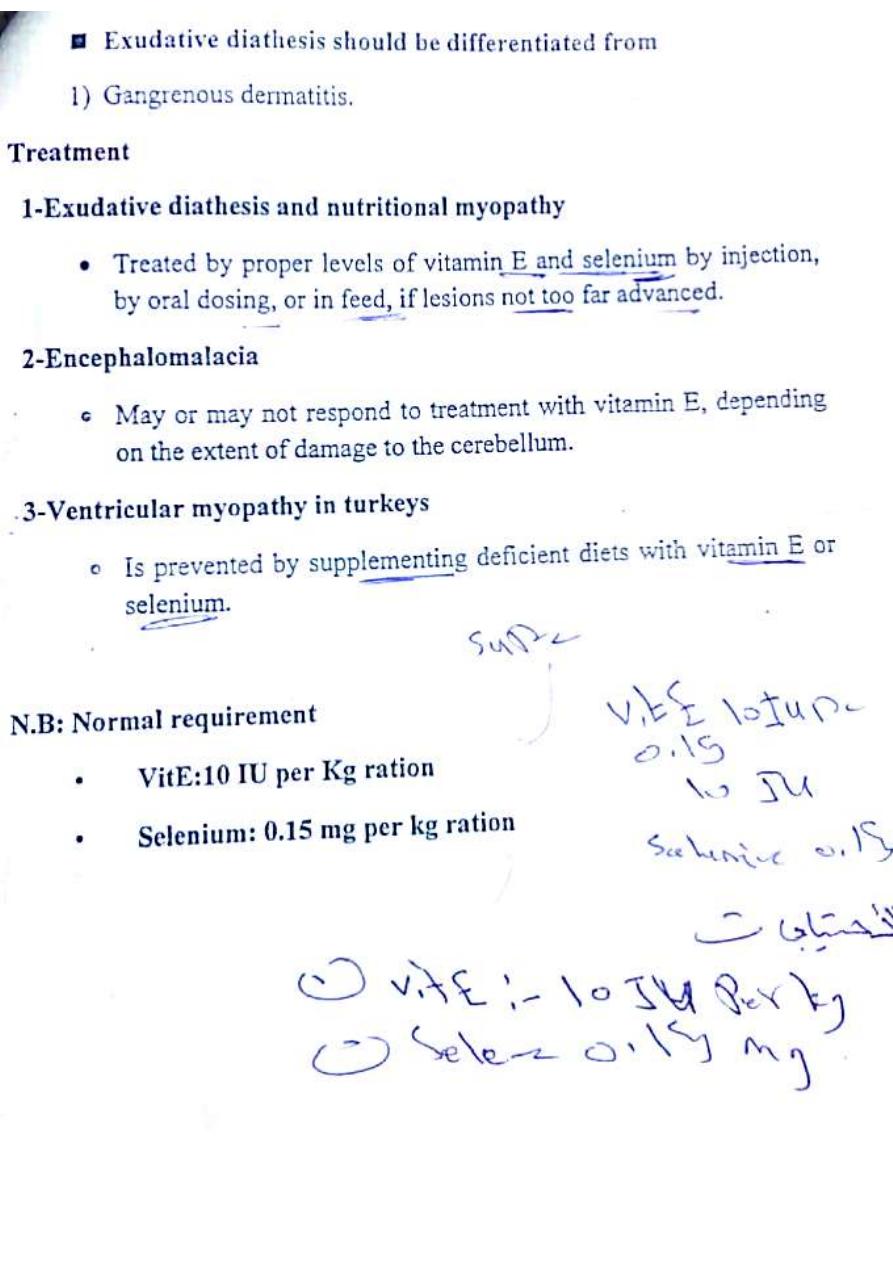 ▪ Exudative diathesis should be differentiated from
1) Gangrenous dermatitis.
Treatment
1-Exudative diathesis and nutritional myopathy
• Treated by proper levels of vitamin E and selenium by injection,
by oral dosing, or in feed, if lesions not too far advanced.
2-Encephalomalacia
• May or may not respond to treatment with vitamin E, depending
on the extent of damage to the cerebellum.
3-Ventricular myopathy in turkeys
o Is prevented by supplementing deficient diets with vitamin E or
selenium.
N.B: Normal requirement
• VitE:10 IU per Kg ration
• Selenium: 0.15 mg per kg ration
Vit E 10 IU
0.15
10 IU
0.15
الأحتياجات
Vit E :- 10 IU Per kg
0.15 mg